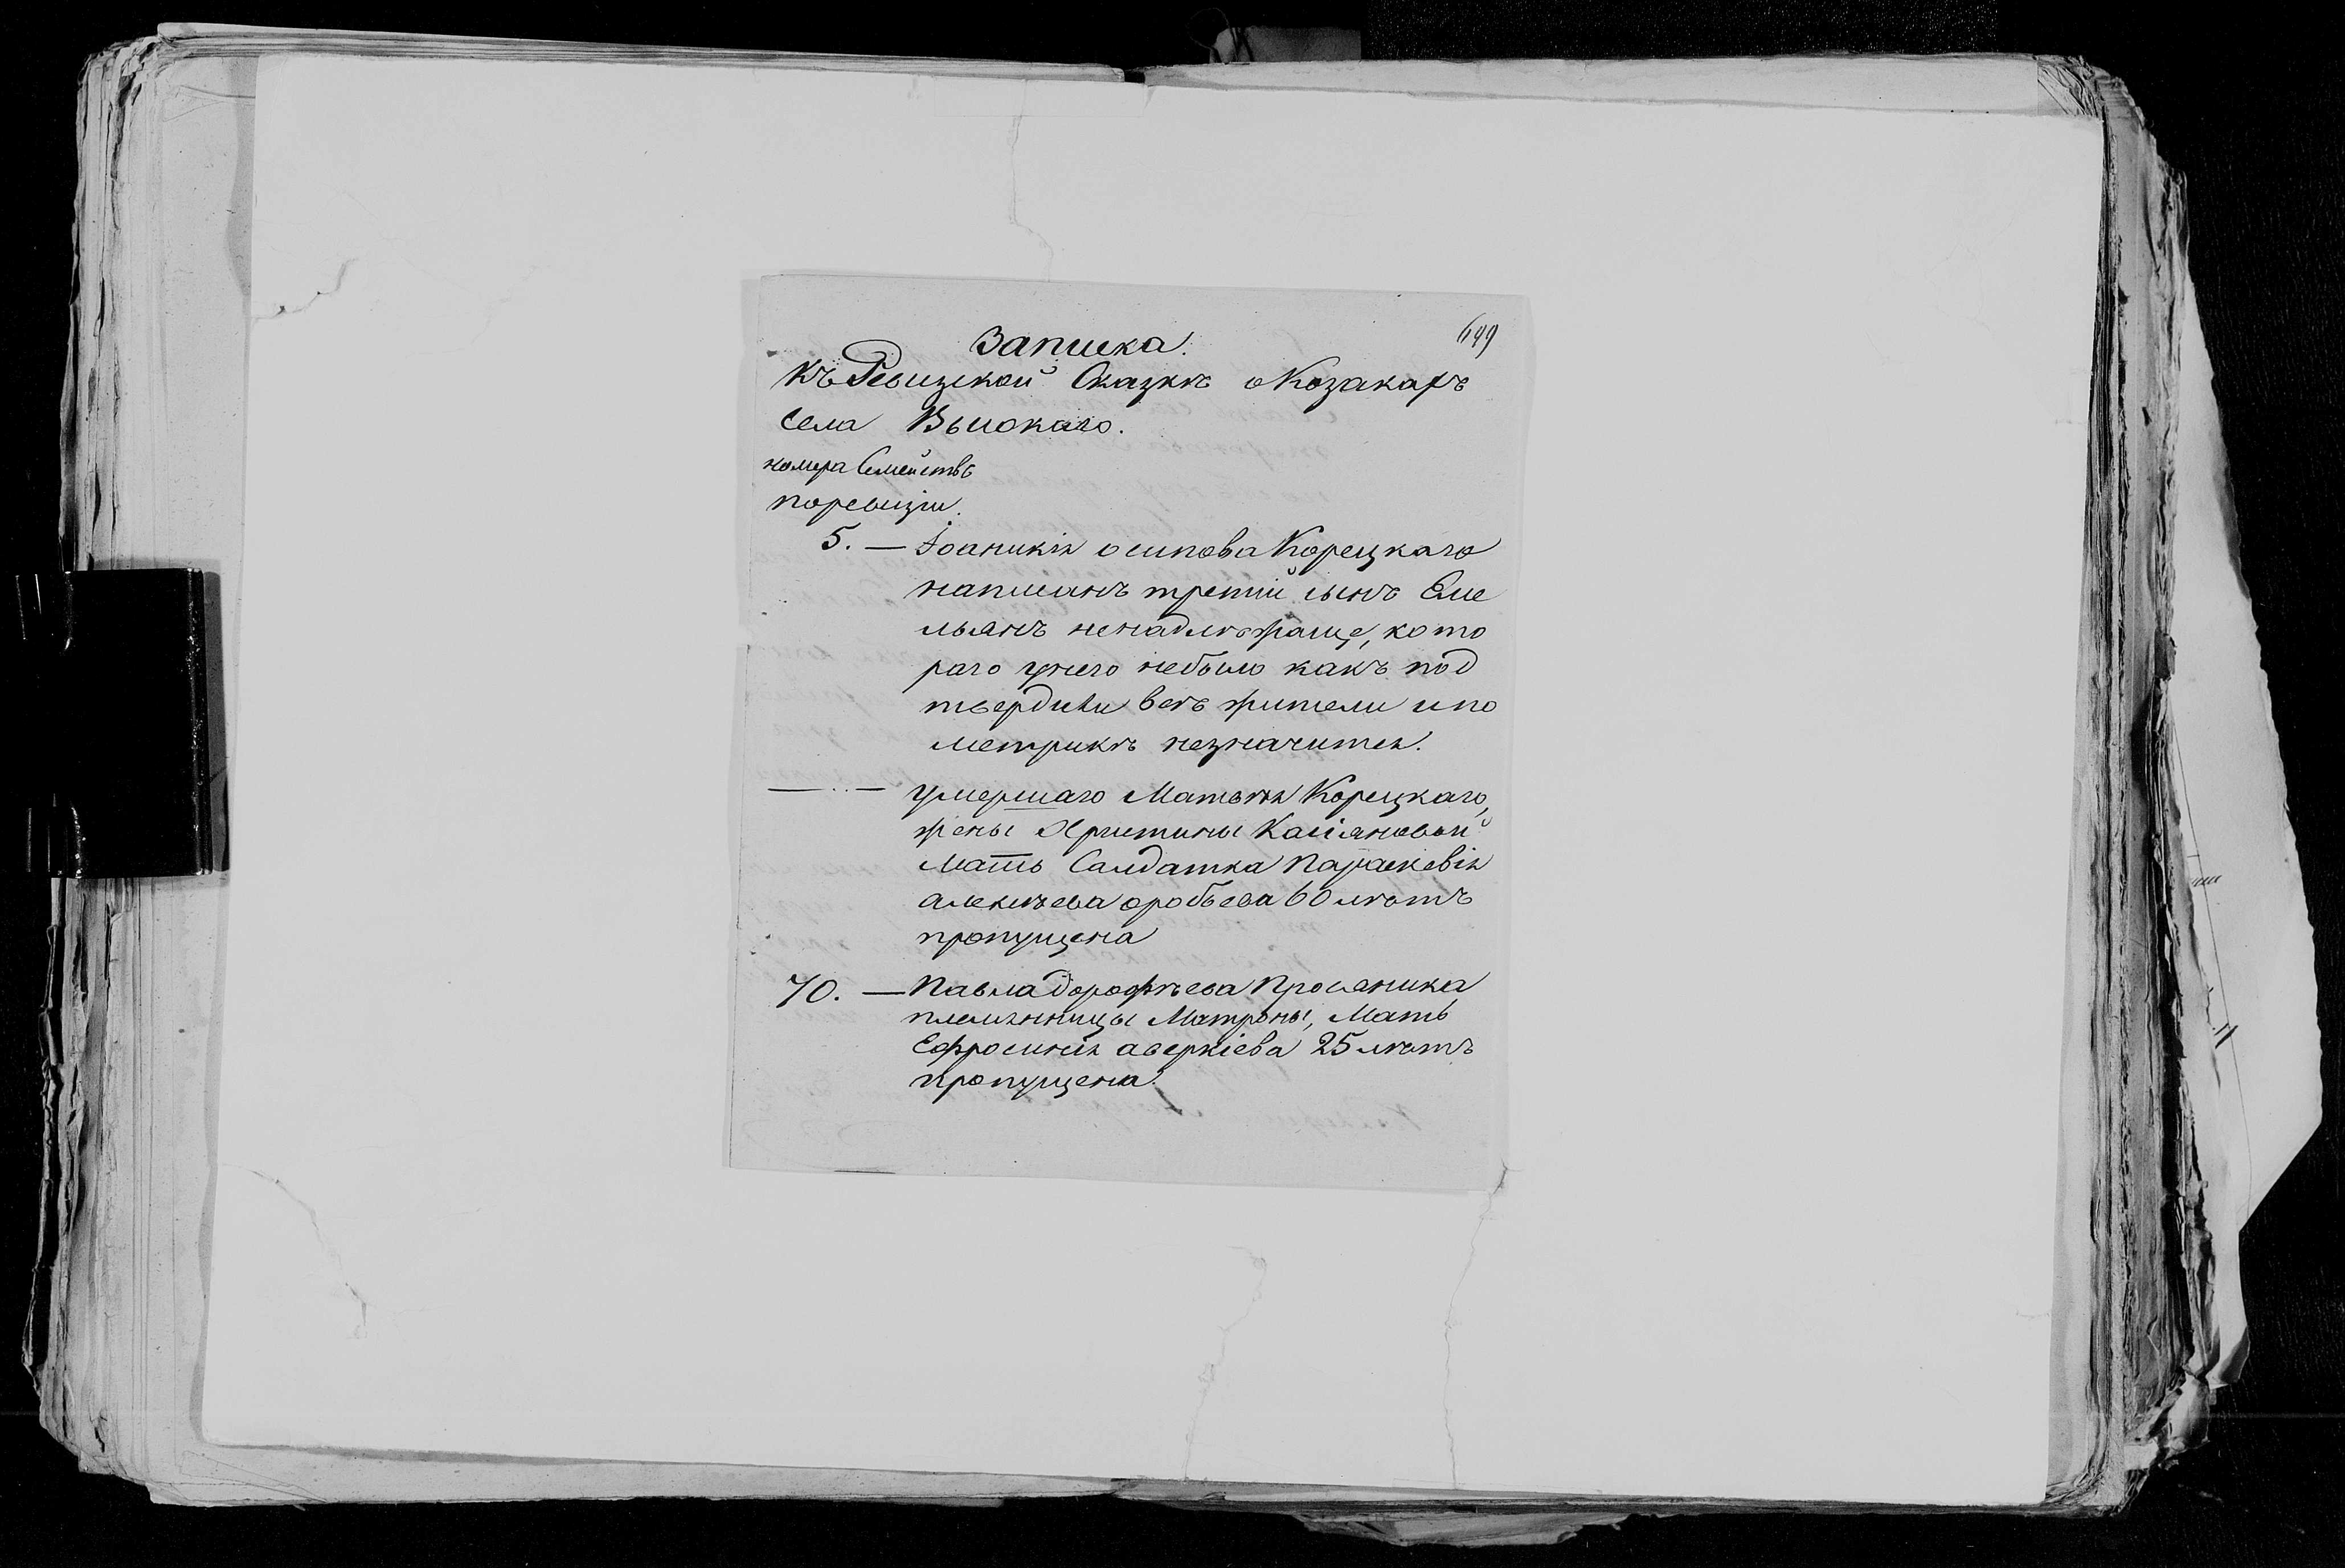 649
Записка.
къ Ревизской Сказкѣ о Козакахъ
села Высокаго.
номера Семействъ
поревизіи.
5. — Іоаникія осипова Корецкаго
написанъ третій сынъ Еме
льянъ ненадлежаще, кото
раго унего небыло какъ под
твердили всѣ жители ипо
метрикѣ незначится.
— " — умершаго Матвѣя Корецкаго,
жены Христины Касіяновой
Мать Салдатка Параскевія
алексѣева оробьева 60 лѣтъ
пропущена
70. — Павла дорофѣева Просяника
племянницы Матроны, Мать
Ефросинія аверкіева 25 лѣтъ
пропущена.